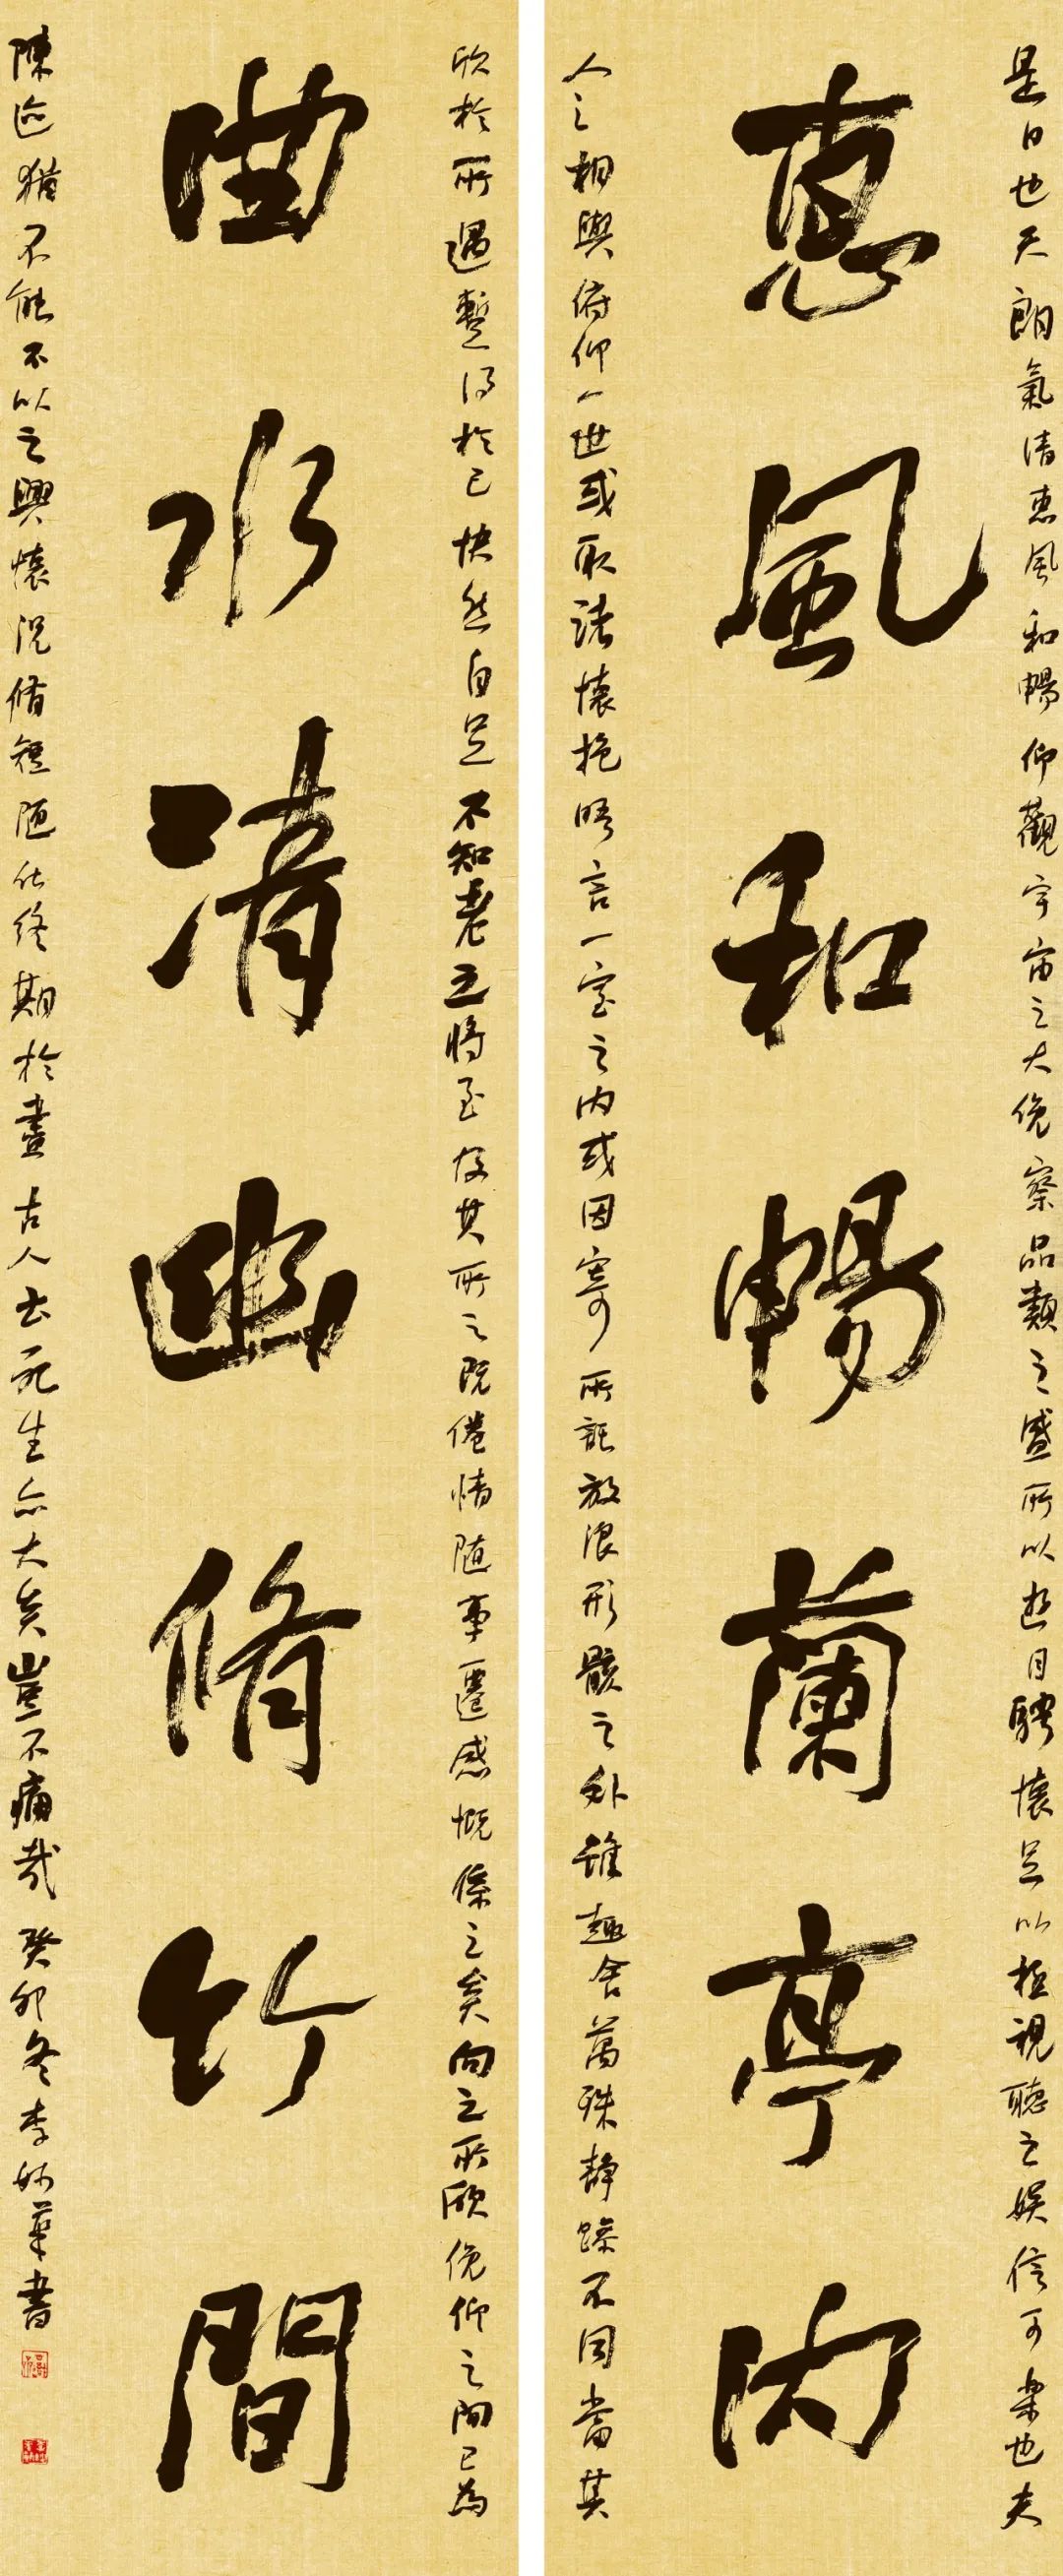 是日也天朗氣清惠風和暢仰觀宇宙之大俛察品類之盛所以遊目騁懷足以極視聽之娛信可樂也夫
惠風和暢蘭亭內
人之相與俯仰一世或取諸懷抱晤言一室之內或因寄所託放浪形骸之外雖趣舍萬殊靜躁不同當其
欣於所遇暫得於己快然自足不知老之將至及其所之既倦情隨事遷感慨係之矣向之所欣俛仰之間已為
曲水清幽脩竹間
陳迹猶不能不以之興懷況脩短隨化終期於盡古人云死生亦大矣豈不痛哉癸卯冬李妙華書